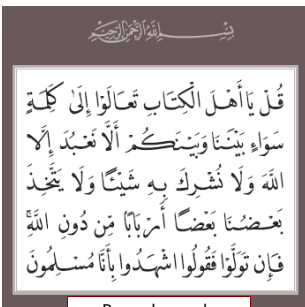 بِسْمِ اللَّهِ الرَّحْمَنِ الرَّحِيمِ
قُلْ يَا أَهْلَ الْكِتَابِ تَعَالَوْا إِلَىٰ كَلِمَةٍ
سَوَاءٍ بَيْنَنَا وَبَيْنَكُمْ أَلَّا نَعْبُدَ إِلَّا
اللَّهَ وَلَا نُشْرِكَ بِهِ شَيْئًا وَلَا يَتَّخِذَ
بَعْضُنَا بَعْضًا أَرْبَابًا مِّن دُونِ اللَّهِ ۚ
فَإِن تَوَلَّوْا فَقُولُوا اشْهَدُوا بِأَنَّا مُسْلِمُونَ